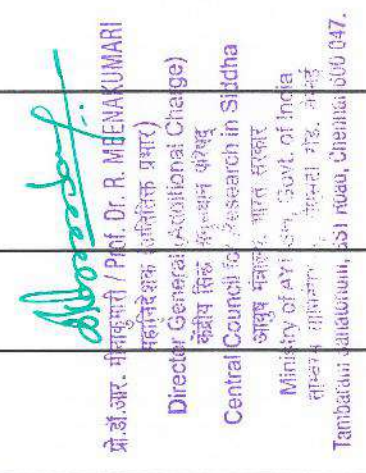 प्रो.डॉ.आर. मीनाकुमारी / Prof. Dr. R. MEENAKUMARI
महानिदेशक (अतिरिक्त प्रभार)
Director General (Additional Charge)
केंद्रीय सिद्ध अनुसंधान परिषद्
Central Council for Research in Siddha
आयुष मंत्रालय, भारत सरकार
Ministry of AYUSH, Govt. of India
Tambaram Sanatorium, Chennai 600 047.